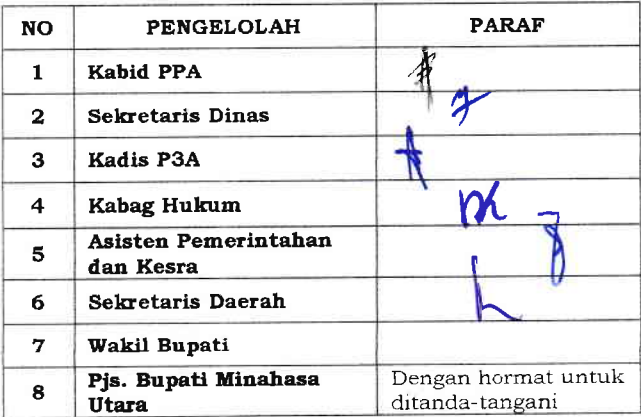 NO PENGELOLAH PARAF
1 Kabid PPA
2 Sekretaris Dinas
3 Kadis P3A
4 Kabag Hukum
5 Asisten Pemerintahan
dan Kesra
6 Sekretaris Daerah
7 Wakil Bupati
8 Pjs. Bupati Minahasa
Utara
Dengan hormat untuk
ditanda-tangani